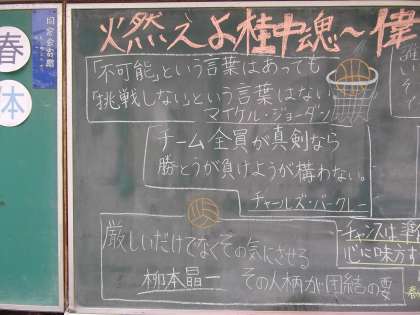 春
本
同窓会寄贈
燃えよ桂中魂～偉
「不可能」という言葉はあっても
「挑戦しない」という言葉はない
マイケル・ジョーダン
チーム全員が真剣なら
勝とうが負けようが構わない。
チャールズ・バークレー
厳しいだけでなくその気にさせる
柳本晶一 その人柄が団結の要
チャンスは準
心に味方す